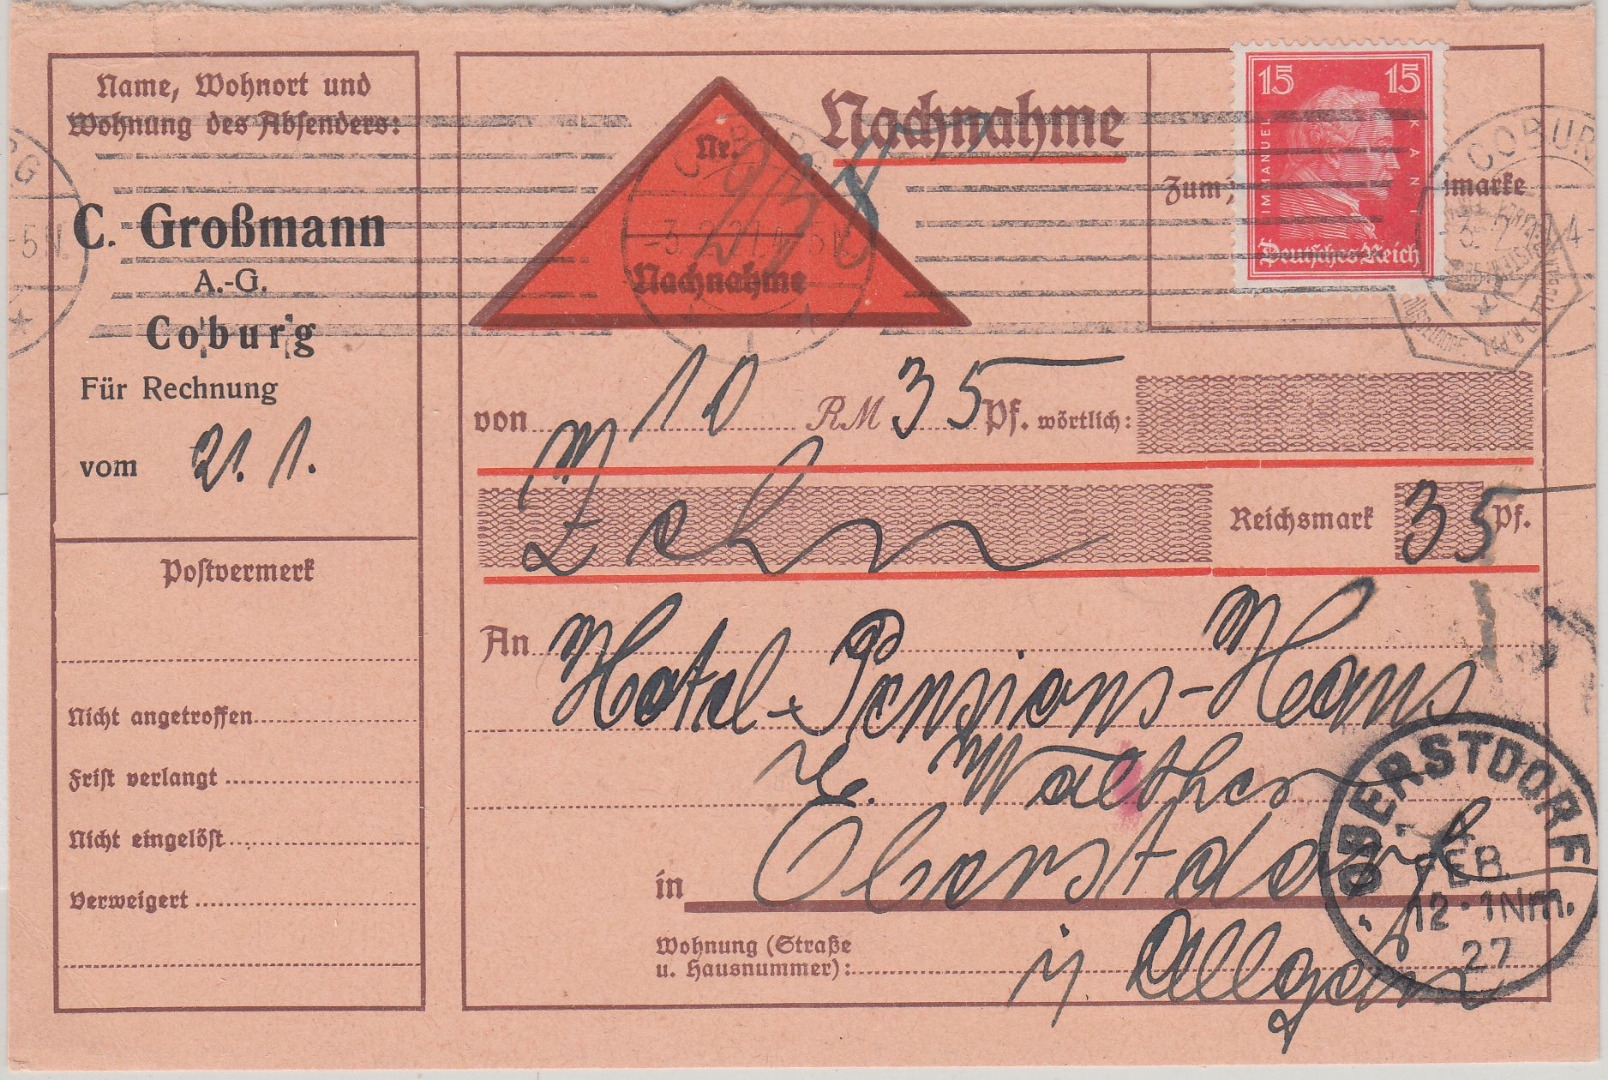 Name, Wohnort und
Wohnung des Absenders:
C. Großmann
A.-G.
Coburg
Für Rechnung
vom 21. 1.
Postvermerk
Nicht angetroffen
Frist verlangt
Nicht eingelöst
Verweigert
Nachnahme
Nr.
Nachnahme
COBURG
-3.2.27.4-5N.
15 15
IMMANUEL KANT
Deutsches Reich
Zum
marke
COBURG
von 10 RM 35 Pf. wörtlich:
Zehn Reichsmark 35 Pf.
An Hotel-Pensions-Haus
E. Walther
in Oberstdorf
Wohnung (Straße
u. Hausnummer):
i/ Allgäu
OBERSTDORF
4
FEB.
12-1Nm.
27